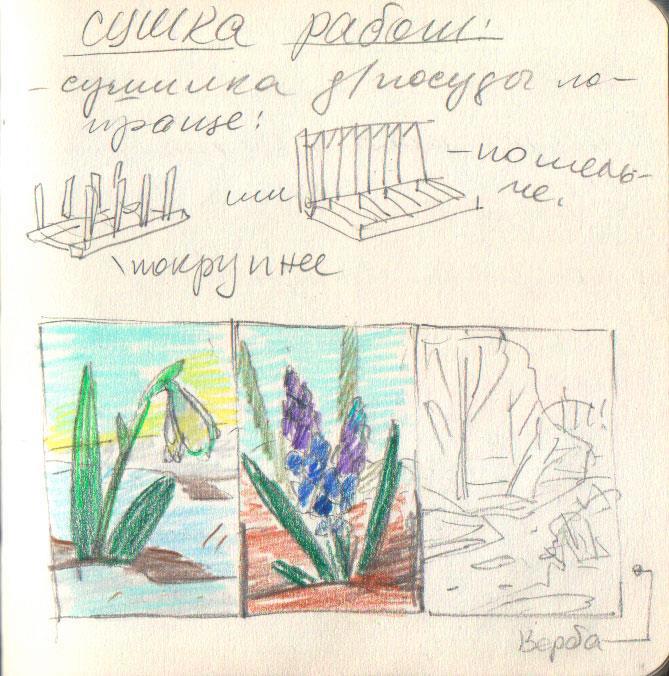 сушка работ:
- сушилка д/посуды по-
проще:
или
- помель-
че.
\покрупнее
!
Верба